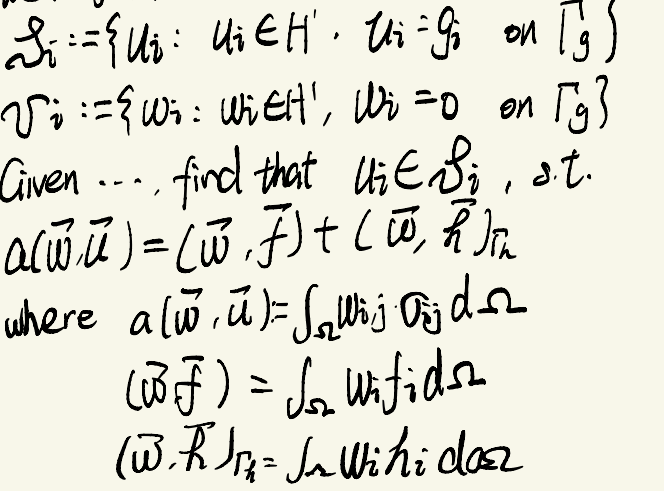 𝒮i := {ui : ui ∈ H¹. ui = gi on Γg}
𝒱i := {wi : wi ∈ H¹, wi = 0 on Γg}
Given ..., find that ui ∈ 𝒮i, s.t.
a(w⃗,u⃗) = (w⃗,f⃗) + (w⃗,h⃗)Γh
where a(w⃗,u⃗) = ∫Ω wi,j σij dΩ
(w⃗ f⃗) = ∫Ω wi fi dΩ
(w⃗,h⃗)Γh = ∫Ω wi hi dΩ